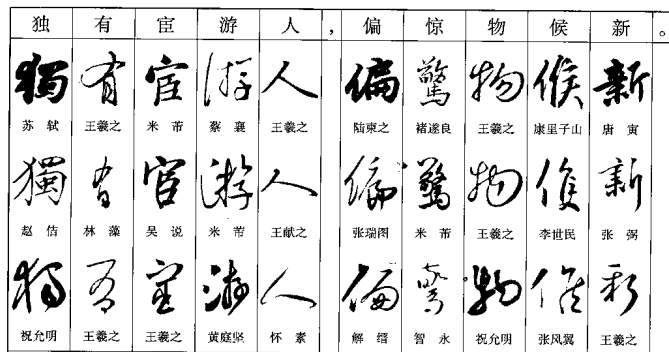 独有宦游人，偏惊物候新。
獨有宦游人偏驚物候新
苏轼 王羲之 米芾 蔡襄 王羲之 陆柬之 褚遂良 王羲之 康里子山 唐寅
獨有宦游人偏驚物候新
赵佶 林藻 吴说 米芾 王献之 张瑞图 米芾 王羲之 李世民 张弼
獨有宦游人偏驚物候新
祝允明 王羲之 王羲之 黄庭坚 怀素 解缙 智永 祝允明 张凤翼 王羲之